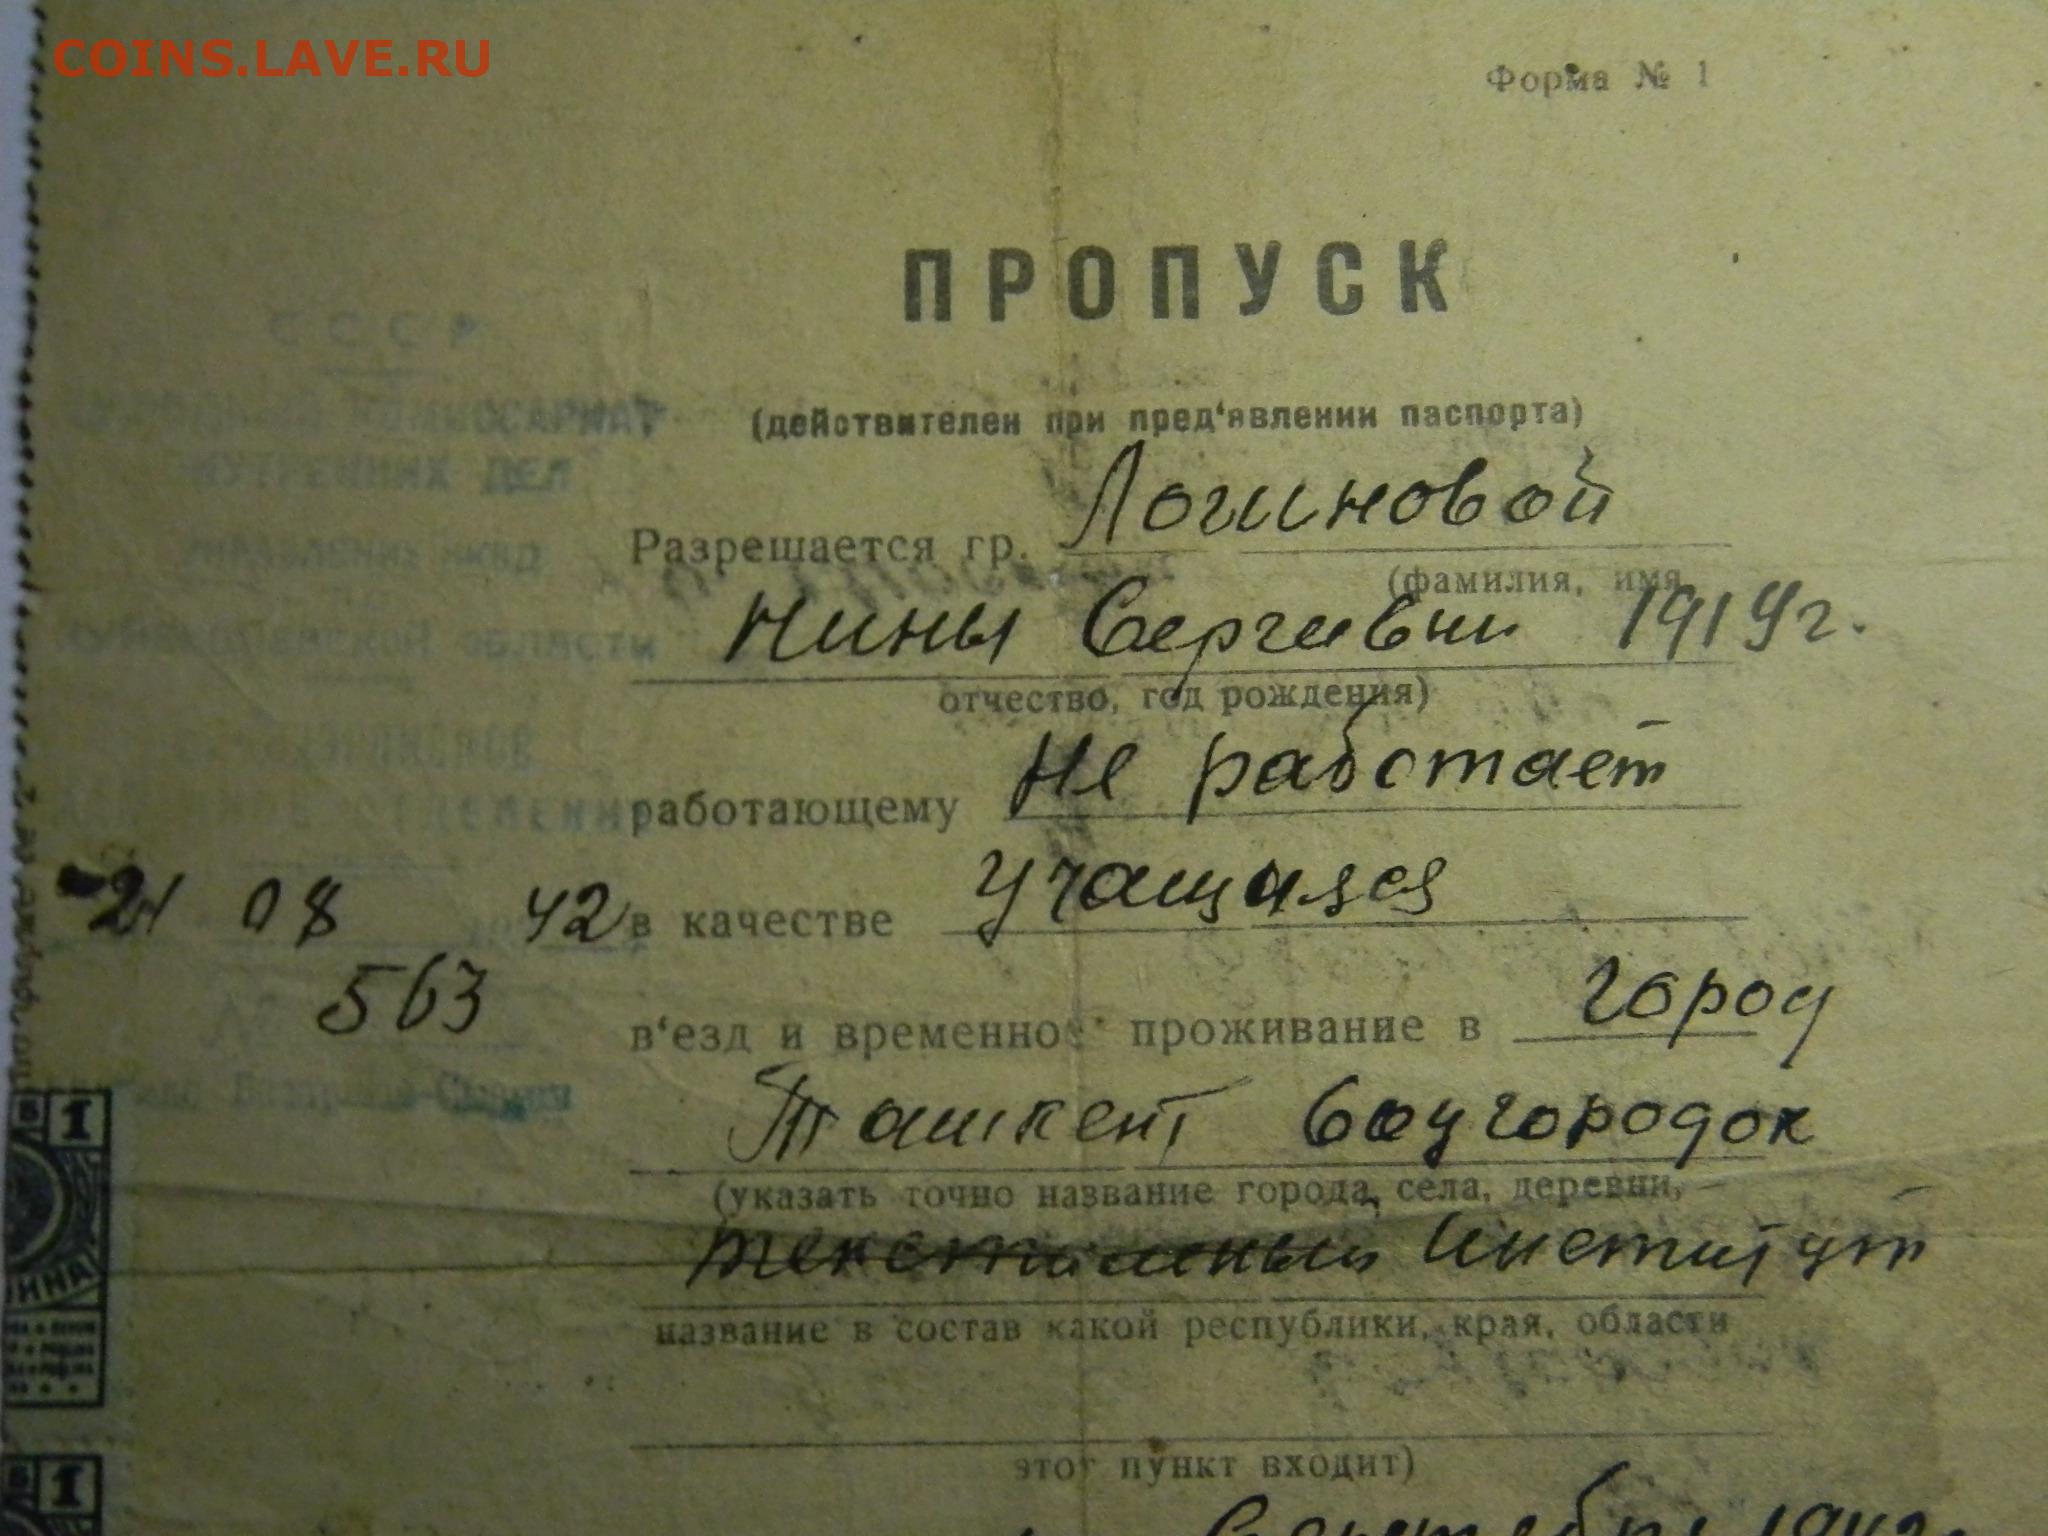 COINS.LAVE.RU
Форма № 1
ПРОПУСК
(действителен при пред‘явлении паспорта)
СССР
КОМИССАРИАТ
ВНУТРЕННИХ ДЕЛ
УПРАВЛЕНИЕ НКВД
КУЙБЫШЕВСКОЙ ОБЛАСТИ
Разрешается гр. Логиновой
(фамилия, имя
Нины Сергеевни 1919г.
отчество, год рождения)
работающему Не работает
ОТДЕЛЕНИЕ
21 08 42
в качестве учащияся
№ 563
в‘езд и временное проживание в город
Ташкент Соцгородок
(указать точно название города, села, деревни,
текстильный Институт
название в состав какой республики, края, области
этот пункт входит)
1
1